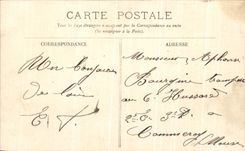 CARTE POSTALE
Tous les Pays étrangers n'acceptent pas la Correspondance au recto
(Se renseigner à la Poste)
CORRESPONDANCE
ADRESSE
Un bonjour
de loin
Monsieur Alphonse
Bourgein
au 6e Hussard
2e 3e
à
Commercy
Meuse